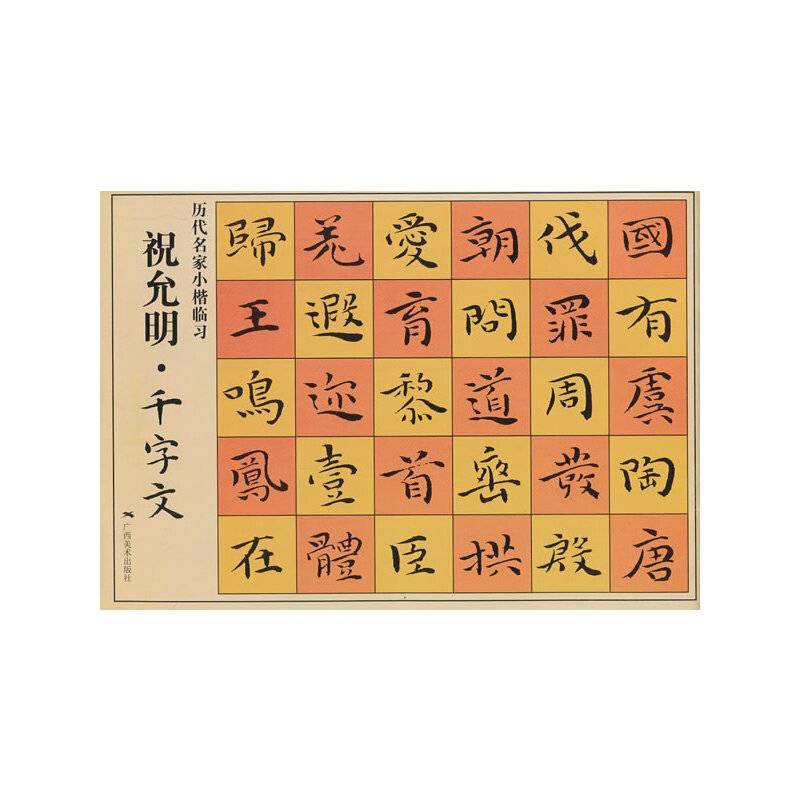 國有虞陶唐
伐罪周發殷
朝問道垂拱
愛育黎首臣
羌遐迩壹體
歸王鳴鳳在
历代名家小楷临习
祝允明·千字文
广西美术出版社